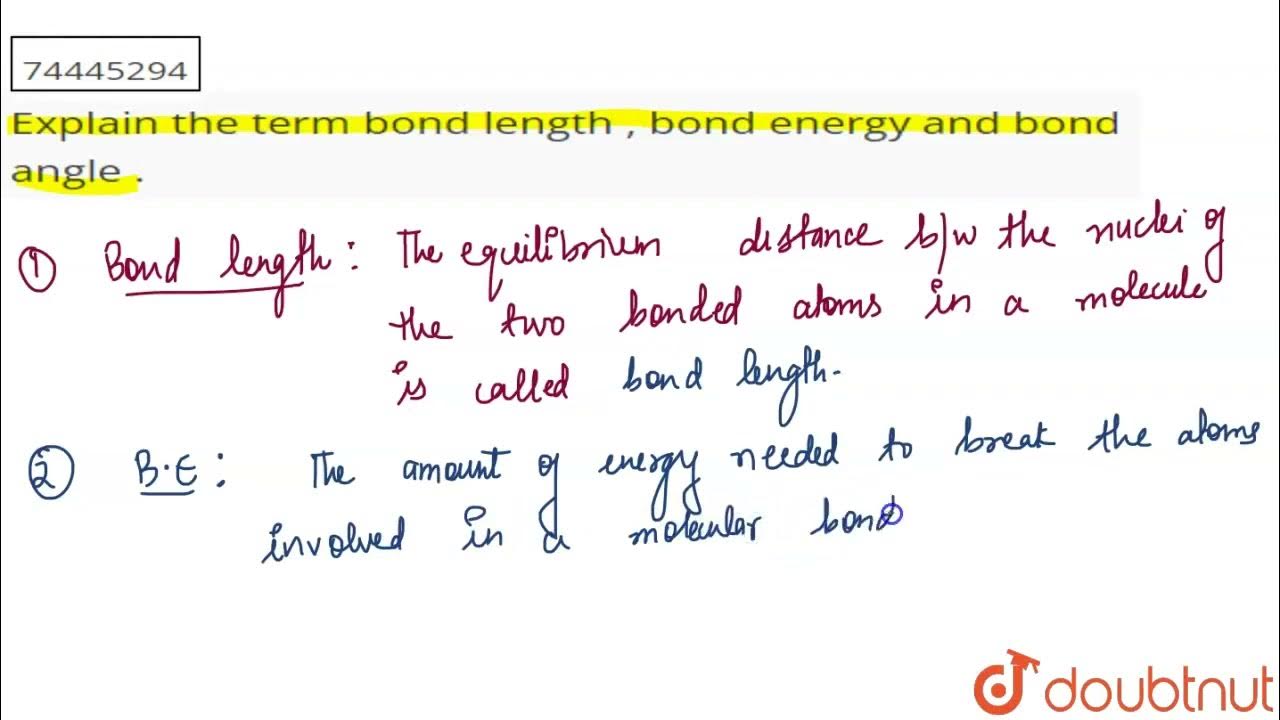 74445294
Explain the term bond length , bond energy and bond
angle .
① Bond length : The equilibrium distance b/w the nuclei of
the two bonded atoms in a molecule
is called bond length.
② B.E : The amount of energy needed to break the atoms
involved in a molecular bond
doubtnut